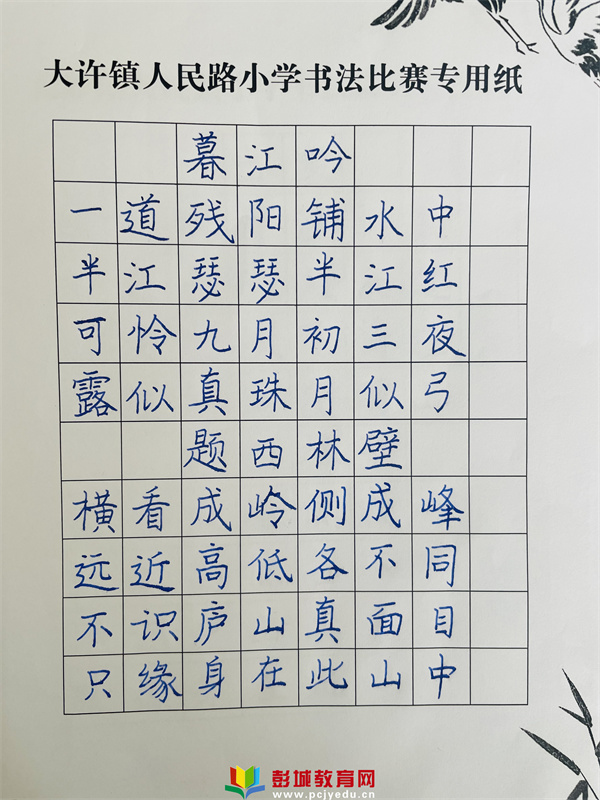 大许镇人民路小学书法比赛专用纸
暮江吟
一道残阳铺水中
半江瑟瑟半江红
可怜九月初三夜
露似真珠月似弓
题西林壁
横看成岭侧成峰
远近高低各不同
不识庐山真面目
只缘身在此山中
彭城教育网
www.pcjyedu.cn